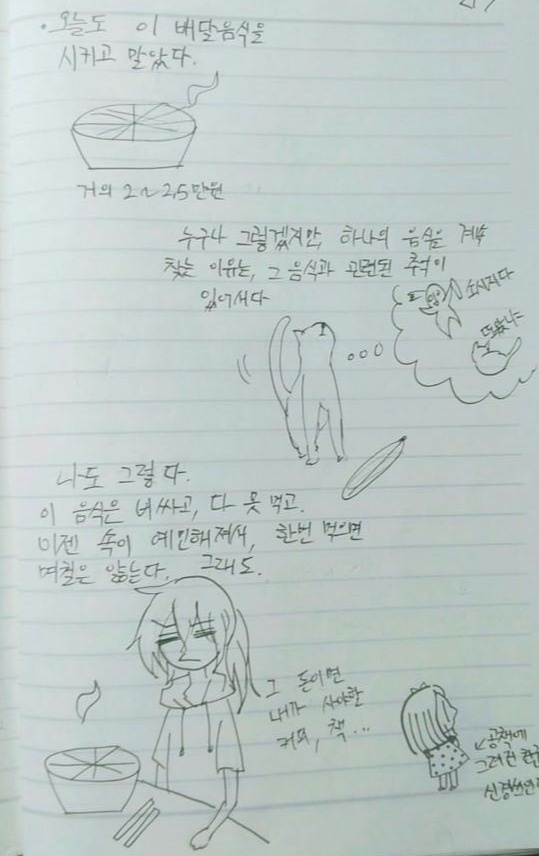 · 오늘도 이 배달음식을
시키고 말았다.
거의 2~2.5만원
누구나 그렇겠지만, 하나의 음식을 계속
찾는 이유는, 그 음식과 관련된 추억이
있어서다
소시지다
또왔냐
나도 그렇다.
이 음식은 비싸고, 다 못 먹고.
이젠 속이 예민해져서, 한번 먹으면
며칠은 앓는다. 그래도.
그 돈이면
내가 사야할
커피, 책...
공책에
그려진